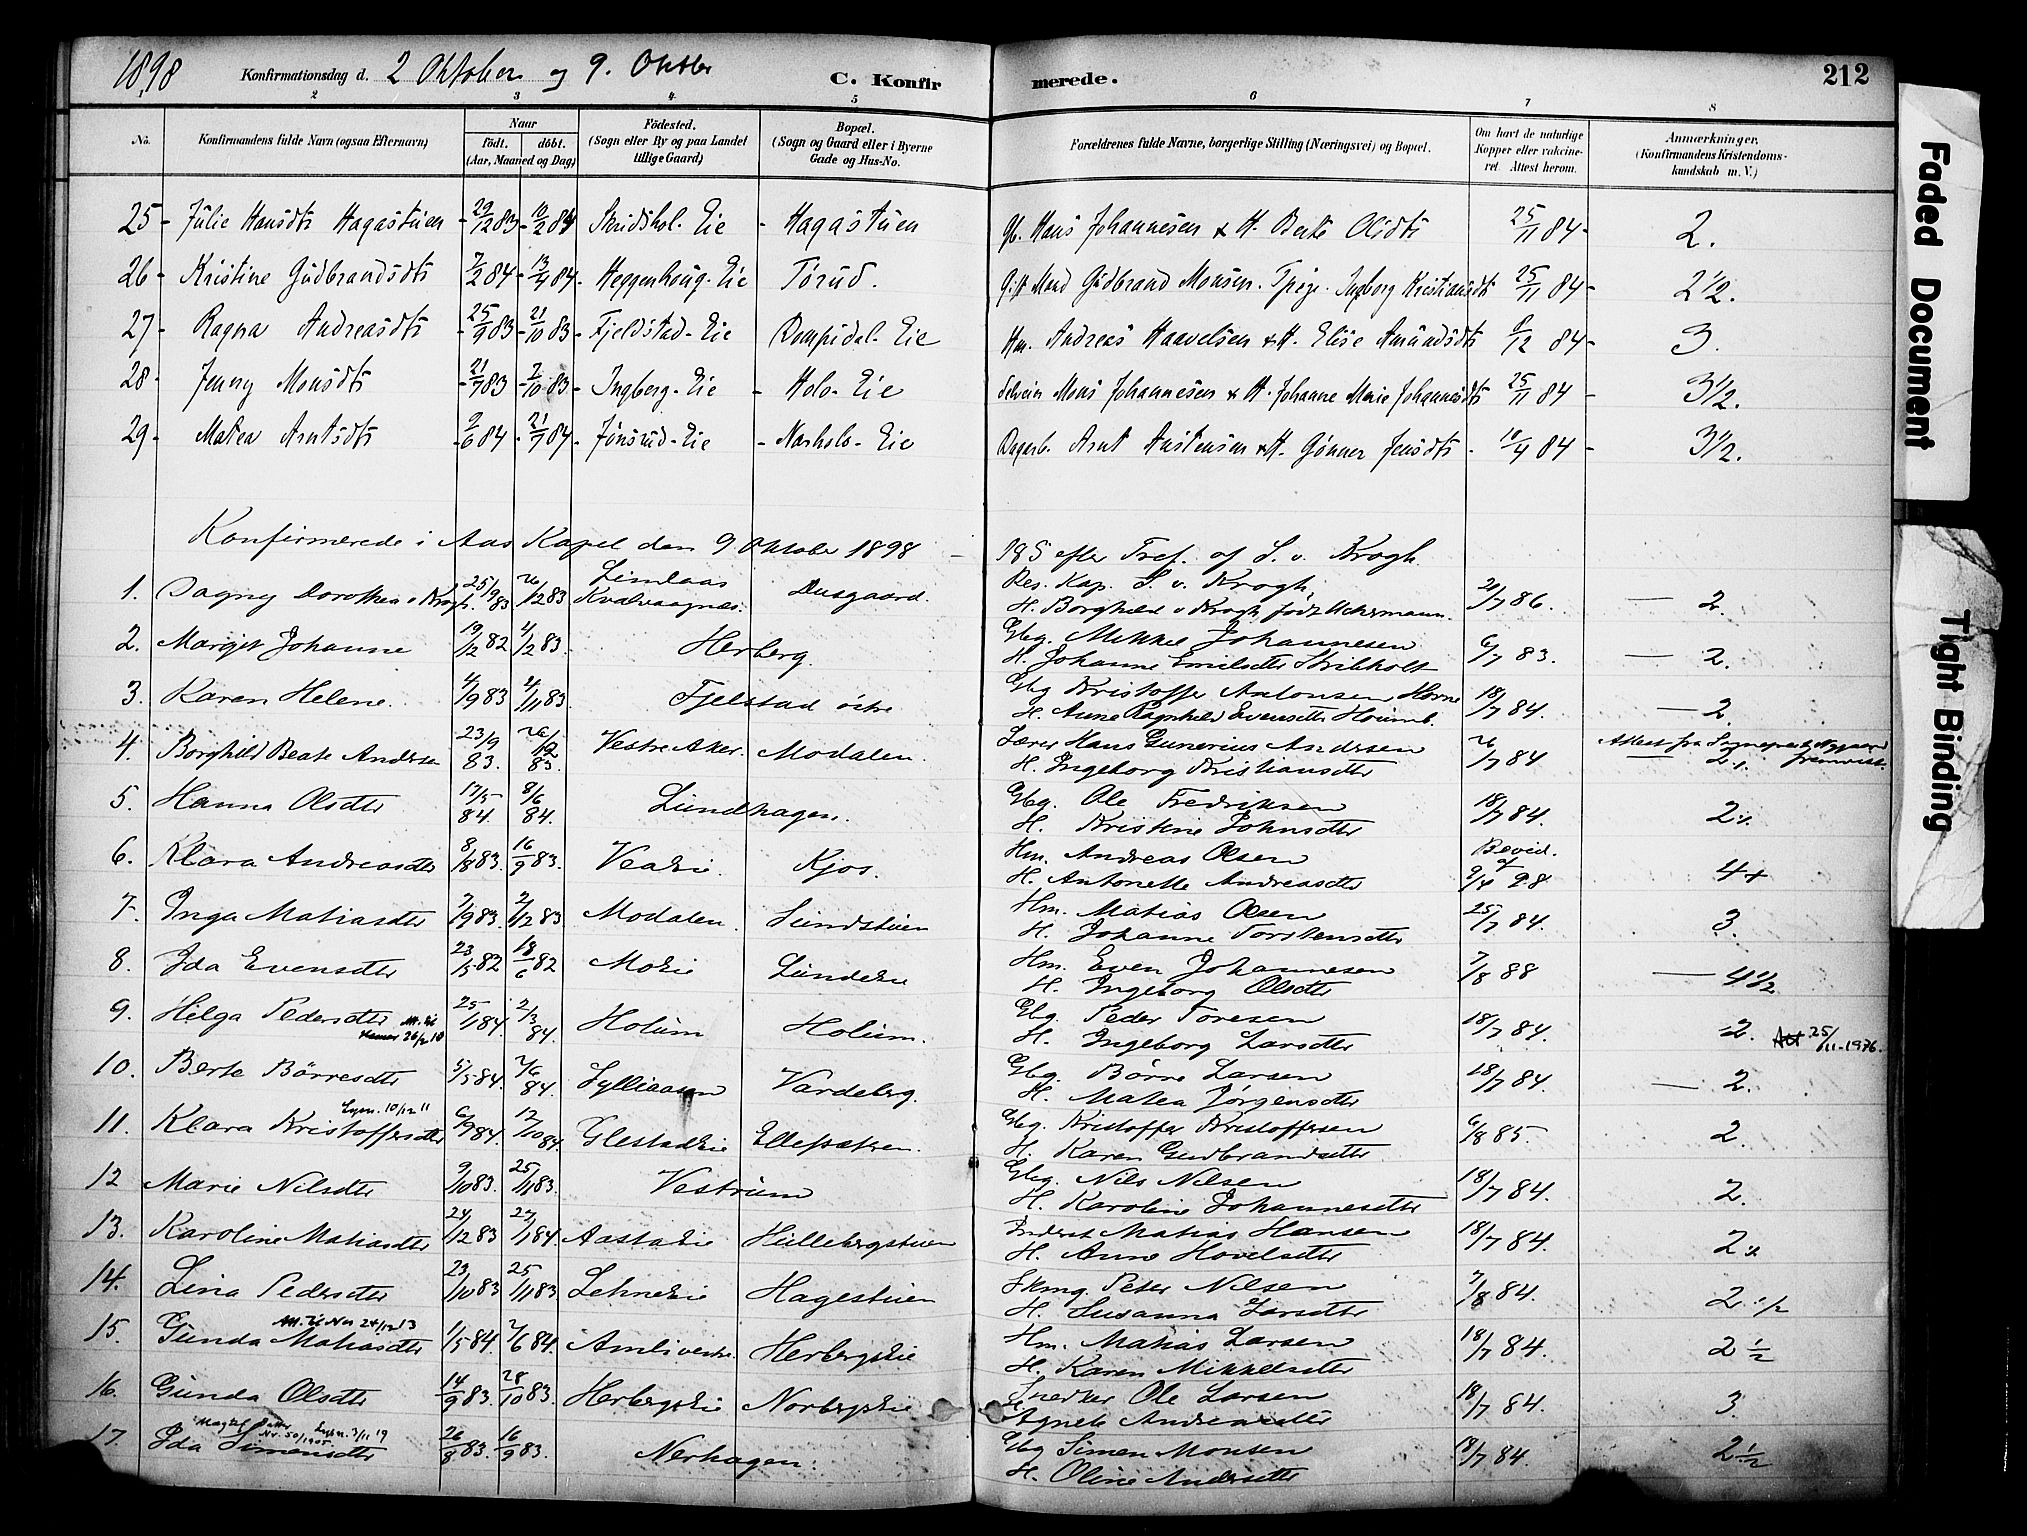 1898 Konfirmationsdag d. 2 Oktober og 9. Oktbr C. Konfirmerede. 212
2 3 4 5 6 7 8
No. Konfirmandens fulde Navn (ogsaa Efternavn) Naar født. døbt. (Aar, Maaned og Dag) Fødested. (Sogn eller By og paa Landet tillige Gaard) Bopæl. (Sogn og Gaard eller i Byerne Gade og Hus-No. Forældrenes fulde Navne, borgerlige Stilling (Næringsvei) og Bopæl. Om havt de naturlige Kopper eller vakcineret. Attest herom. Anmærkninger. (Konfirmandens Kristendomskundskab m. V.)
25 - Julie Hansdtr Hagastuen - 29/12 83 - 10/2 84 Skridshol. Eie - Hagastuen Gb. Hans Johannesen & H. Berte Olsdtr 25/11 84 - 2.
26 - Kristine Gudbrandsdtr 7/2 84 - 13/4 84 - Heggenhoug. Eie Torud. Gift Mand Gudbrand Monsen. Ingborg Kristiansdtr 25/11 84 - 2 1/2.
27 - Ragna Andreasdtr - 25/9 83 - 21/10 83 - Fjeldstad - Eie Dompidal. Eie Hm. Andreas Haavelsen & H. Elise Amundsdtr 8/12 84 - 3.
28 - Jenny Monsdtr - 21/7 83 - 2/10 83 - Ingberg. Eie - Holo. Eie Selveier Mons Johannesen & H. Johanne Marie Johannesdtr 25/11 84 - 3 1/2.
29 - Matea Arntsdtr - 9/6 84 - 21/7 84 - Jønsrud - Eie - Norholo - Eie Dagarb. Arnt Austensen & H. Gunner Jensdtr - 10/4 84 - 3 1/2.
Konfirmerede i Aas Kapel den 9 Oktober 1898 - 19 S efter Tref. af S. v. Krogh.
1. Dagny Dorothea v Krogh. 25/9 83 26/12 83 Limlaas Kvalvaagnes. Dusgaard. Res. Kap. S. v. Krogh, 21/7 86. — 2.
H. Borghild v Krogh født Uchermann.
2. Margit Johanne 19/12 82 4/2 83. Herberg. Gbg. Mikkel Johannesen 6/7 83. — 2.
H. Johanne Emilsdtr Skikholt
3. Karen Helene. 4/9 83 4/11 83. Fjelstad østre Gbg Kristoffer Antonsen Horne 18/7 84. — 2
H. Anne Ragnhild Evensdtr
4. Borghild Beate Andersen 23/9 83. 26/12 83. Vestre Aker. Modalen. Lærer Hans Gunerius Andersen 26/7 84 Attest fra
H. Ingeborg Kristiansdtr
5. Hanna Olsdtr 17/5 84. 8/6 84. Lundhagen. Gbg. Ole Fredriksen 18/7 84. 2
H. Kristine Johnsdtr
6. Klara Andreasdtr 8/8 83. 16/9 83. Veaeie. Kjos. Hm. Andreas Olsen Bevid. af 9/4 98. 4+
H. Antonette Andreasdtr
7. Inga Matiasdtr 7/9 83. 2/12 83 Modalen. Sundstuen Hm. Matias Olsen 25/7 84. 3.
H. Johanne Torstensdtr
8. Ida Evensdtr 23/5 82 18/6 82 Moeie Lundeeie Hm. Even Johannesen 7/8 88 — 4 1/2
H. Ingeborg Olsdtr
9. Helga Pedersdtr 25/1 84. 2/3 84. Holum Holum. Gbg. Peder Toresen 18/7 84. 2. Att 25/11-1976.
Hamar 26/2 10 H. Ingeborg Larsdtr
10. Berte Børresdtr 5/5 84. 2/6 84. Lylliaasen Vardeberg. Gbg. Børre Larsen 18/7 84. — 2.
H. Matea Jørgensdtr
11. Klara Kristoffersdtr 10/12 11 6/9 84. 12/10 84. Glestadeie Ellefsætren. Gbg. Kristoffer Kristoffersen 6/8 85. 2.
H. Karen Gudbrandsdtr
12 Marie Nilsdtr 9/10 83. 25/11 83. Vestrum Gbg. Nils Nilsen 18/7 84. 2.
H. Karoline Johannesdtr
13. Karoline Matiasdtr 24/12 83 27/1 84. Aastaeie Hullebergstuen Inderst Matias Hansen 18/7 84. 2
H. Anne Hovelsdtr
14. Lina Pedersdtr 23/10 83 25/11 83 Lehneeie Hagestuen Skmg. Peter Nilsen 7/8 84. 2 1/2
H. Susanna Larsdtr
15. Gunda Matiasdtr 1/5 84. 2/6 84. Amli vestre. Herbergseie Hm. Matias Larsen 18/7 84. 2 1/2
H. Karen Mikkelsdtr
16. Gunda Olsdtr 14/9 83. 28/10 83. Herbergseie Norbergseie Snedker Ole Larsen 18/7 84. 3.
Agnete Andreasdtr
17. Ida Simensdtr 26/8 83. 16/9 83. Nerhagen. Gbg Simen Monsen 18/7 84. 2 1/2
Nr. 50/1905 3/11 19 H. Oline Andersdtr
Faded Document
Tight Binding